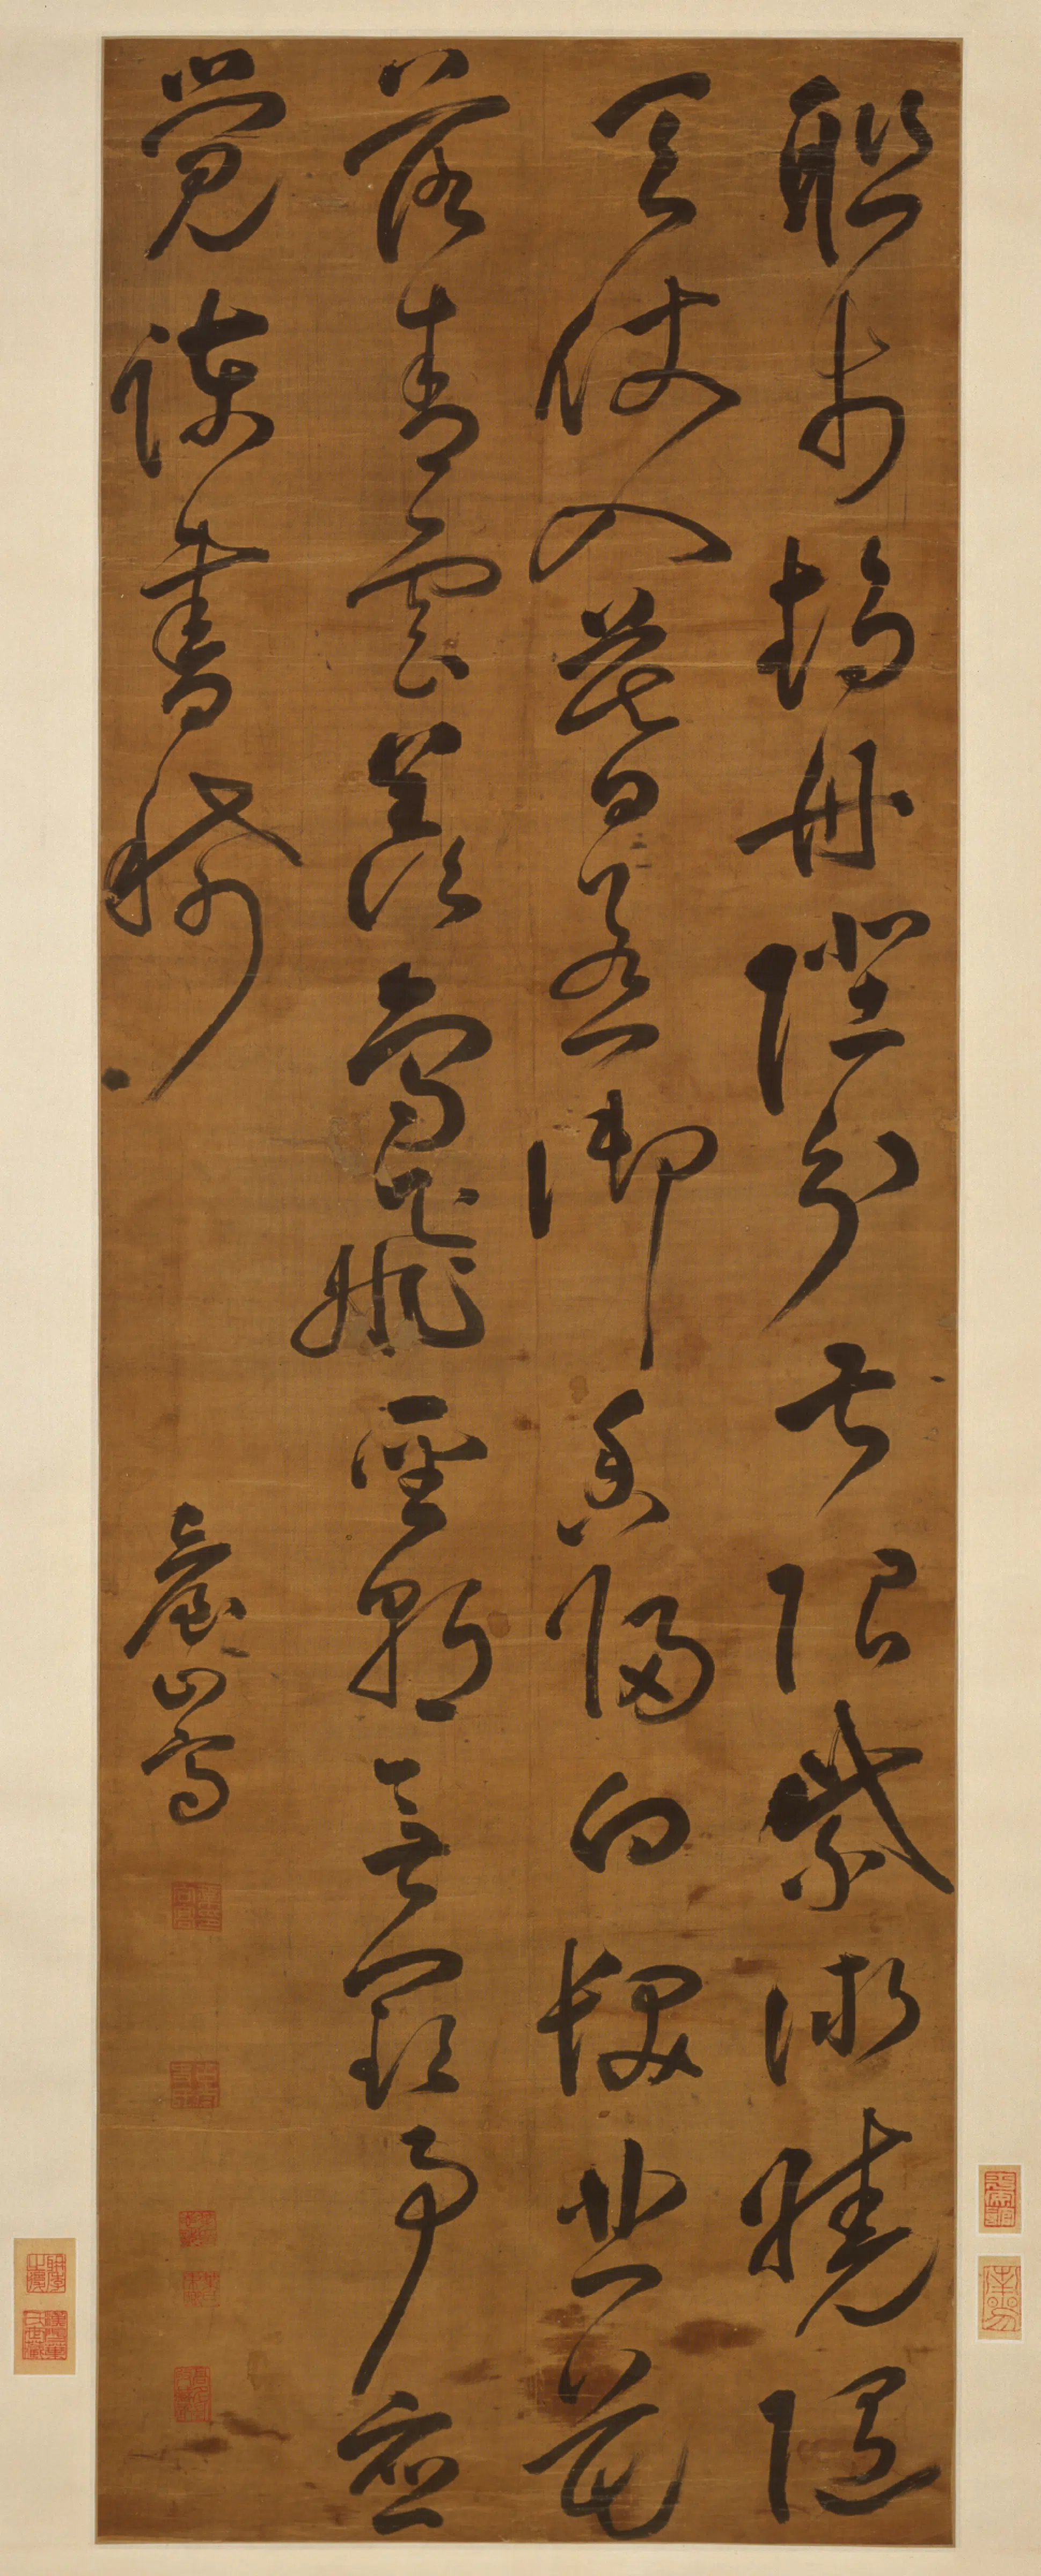 聯步趨丹陛分曹限紫微曉隨
天仗入暮惹御香歸白髮悲花
落青雲羨鳥飛聖朝無闕事應
覺諫書稀
臺山寫